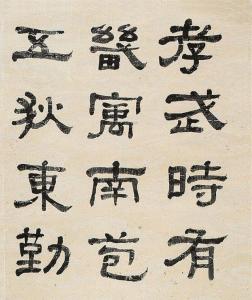 孝武時有
畿寓南苞
五狄東勤